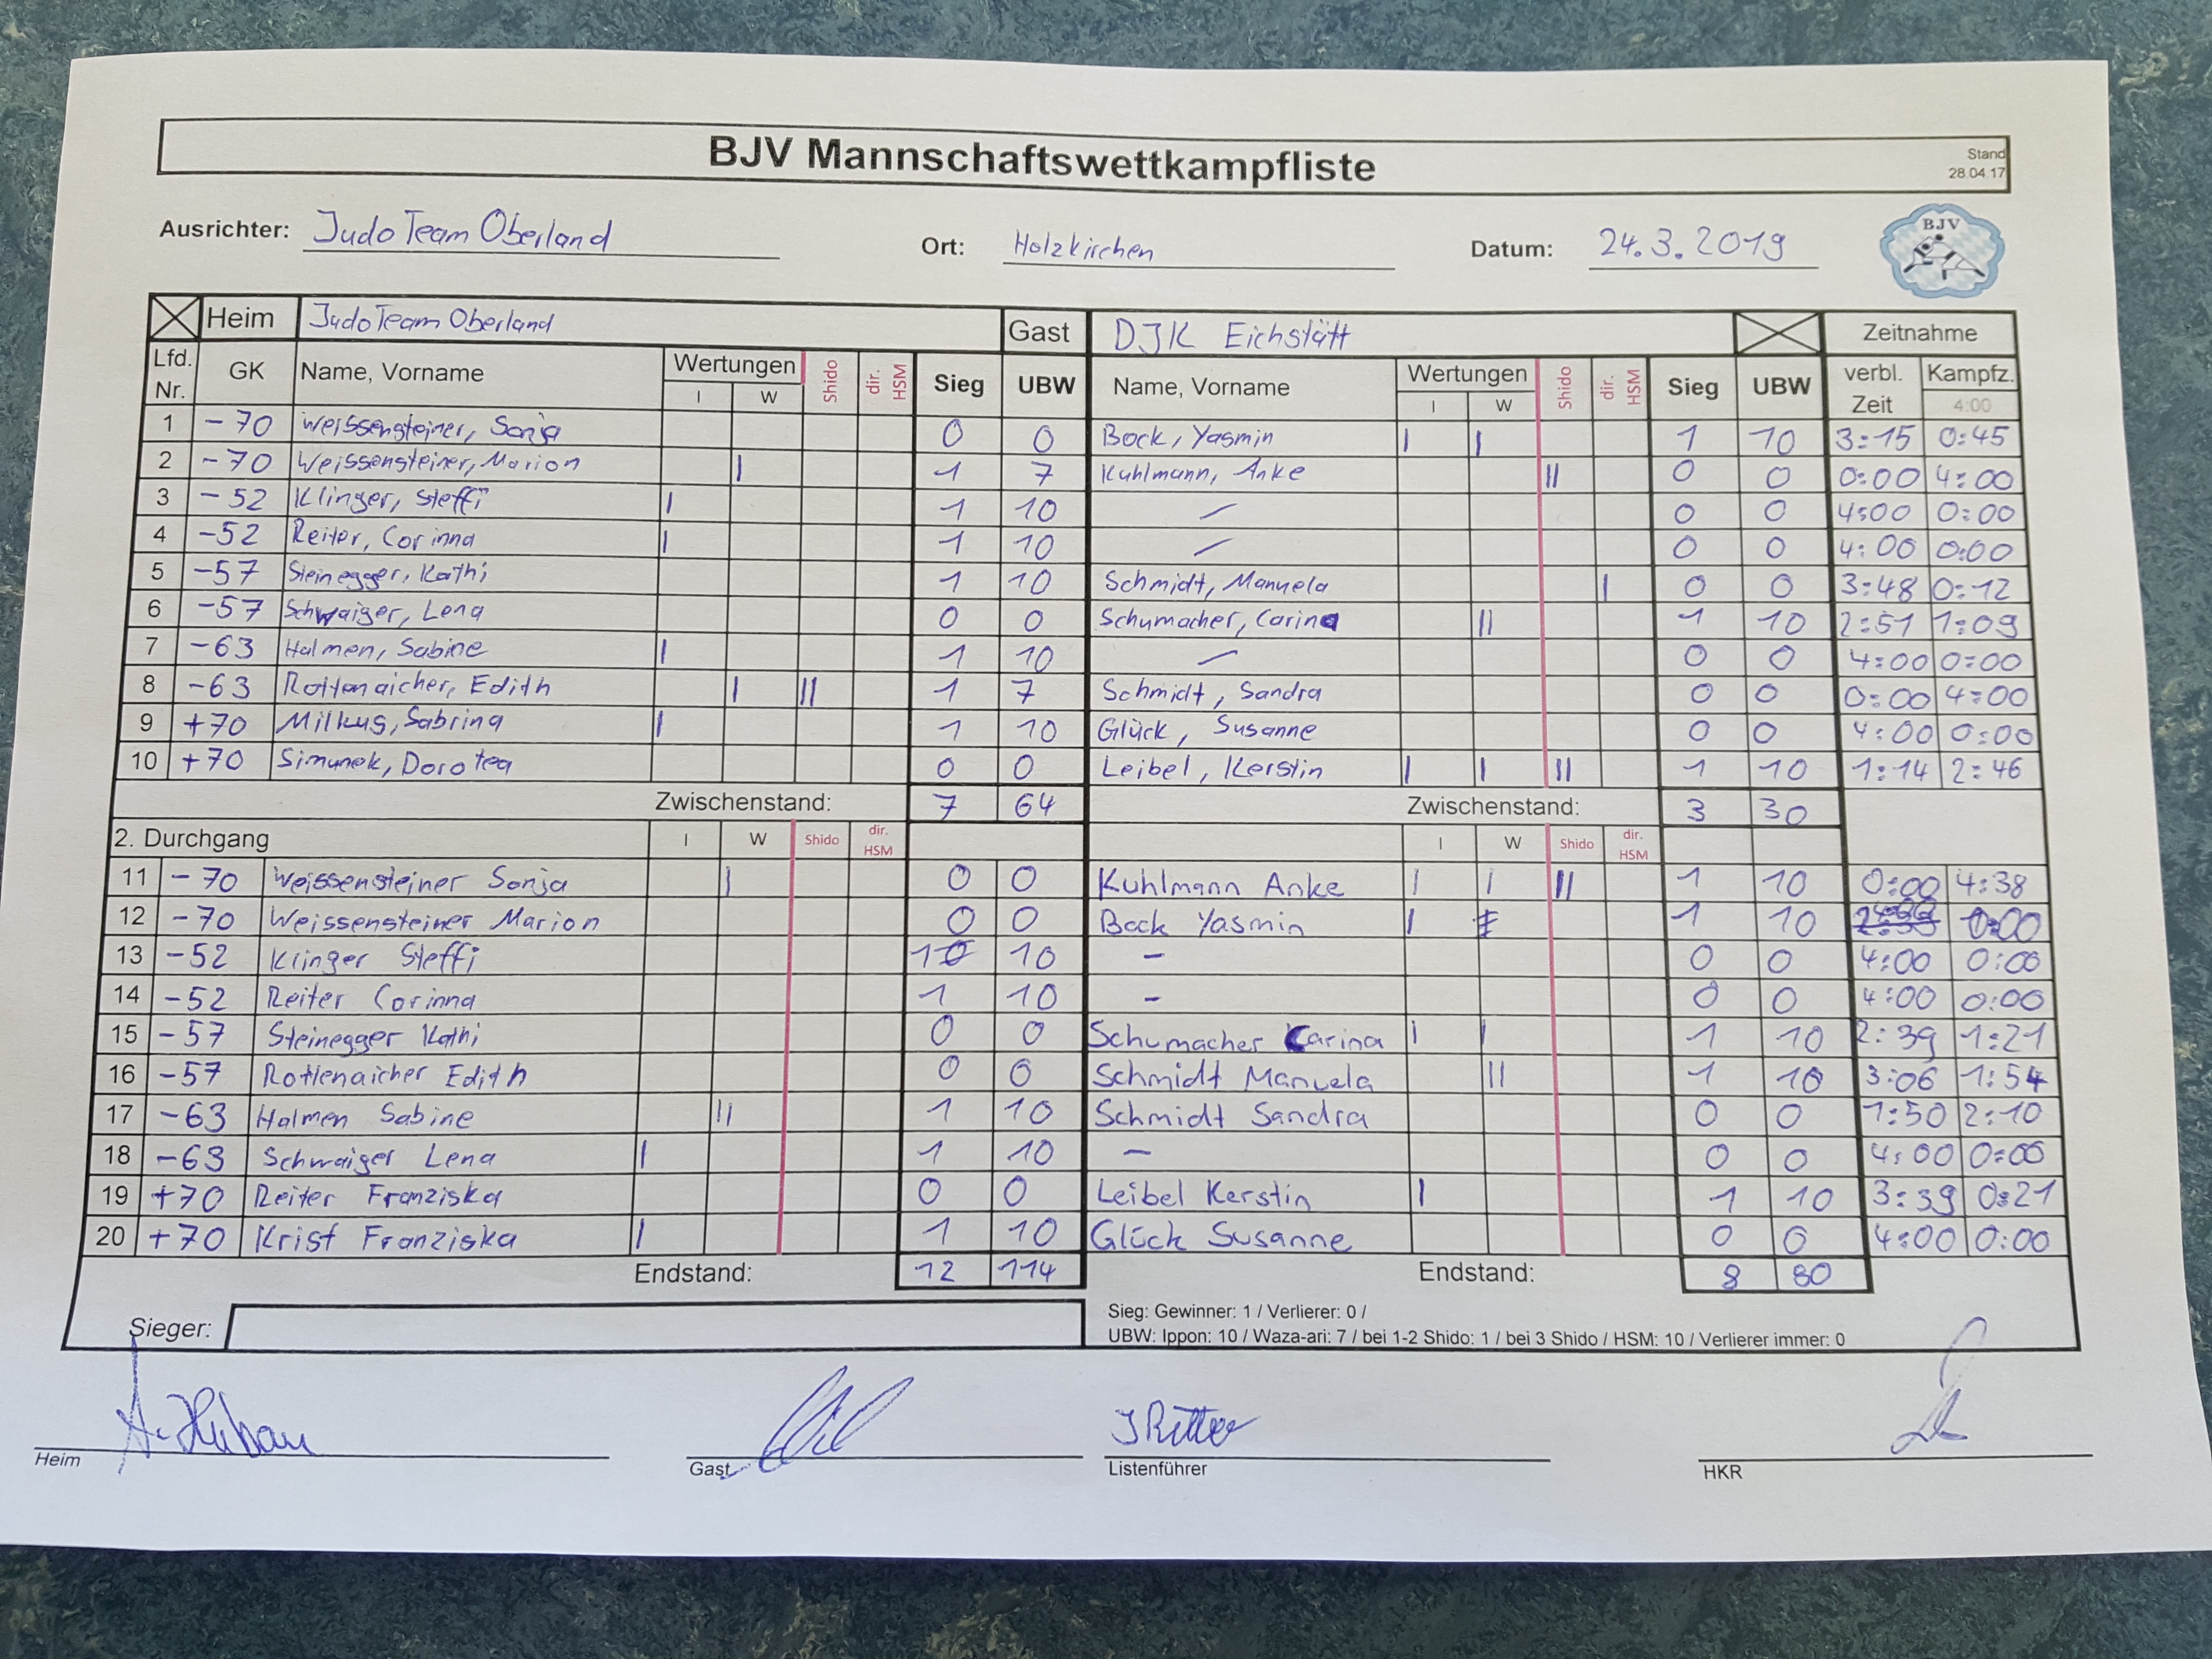 BJV Mannschaftswettkampfliste
Stand
28.04.17
Ausrichter: Judo Team Oberland Ort: Holzkirchen Datum: 24.3.2019
BJV
Heim Judo Team Oberland Gast DJK Eichstätt Zeitnahme
Lfd. Nr. GK Name, Vorname Wertungen I W Shido dir. HSM Sieg UBW Name, Vorname Wertungen I W Shido dir. HSM Sieg UBW verbl. Zeit Kampfz. 4:00
1 -70 Weissensteiner, Sonja 0 0 Bock, Yasmin | | 1 10 3:15 0:45
2 -70 Weissensteiner, Marion | 1 7 Kuhlmann, Anke || 0 0 0:00 4:00
3 -52 Klinger, Steffi | 1 10 – 0 0 4:00 0:00
4 -52 Reiter, Corinna | 1 10 – 0 0 4:00 0:00
5 -57 Steinegger, Kathi 1 10 Schmidt, Manuela | 0 0 3:48 0:12
6 -57 Schwaiger, Lena 0 0 Schumacher, Carina || 1 10 2:51 1:09
7 -63 Halmen, Sabine | 1 10 – 0 0 4:00 0:00
8 -63 Rottenaicher, Edith | || 1 7 Schmidt, Sandra 0 0 0:00 4:00
9 +70 Milkus, Sabrina | 1 10 Glück, Susanne 0 0 4:00 0:00
10 +70 Simunek, Dorotea 0 0 Leibel, Kerstin | | || 1 10 1:14 2:46
Zwischenstand: 7 64 Zwischenstand: 3 30
2. Durchgang I W Shido dir. HSM I W Shido dir. HSM
11 -70 Weissensteiner Sonja | 0 0 Kuhlmann Anke | | || 1 10 0:00 4:38
12 -70 Weissensteiner Marion 0 0 Bock Yasmin | 1 10 0:00
13 -52 Klinger Steffi 1 10 – 0 0 4:00 0:00
14 -52 Reiter Corinna 1 10 – 0 0 4:00 0:00
15 -57 Steinegger Kathi 0 0 Schumacher Carina | | 1 10 2:39 1:21
16 -57 Rottenaicher Edith 0 0 Schmidt Manuela || 1 10 3:06 1:54
17 -63 Halmen Sabine || 1 10 Schmidt Sandra 0 0 1:50 2:10
18 -63 Schwaiger Lena | 1 10 – 0 0 4:00 0:00
19 +70 Reiter Franziska 0 0 Leibel Kerstin | 1 10 3:39 0:21
20 +70 Krist Franziska | 1 10 Glück Susanne 0 0 4:00 0:00
Endstand: 12 114 Endstand: 8 80
Sieg: Gewinner: 1 / Verlierer: 0 /
Sieger:
UBW: Ippon: 10 / Waza-ari: 7 / bei 1-2 Shido: 1 / bei 3 Shido / HSM: 10 / Verlierer immer: 0
J Ritter
Heim Gast Listenführer HKR